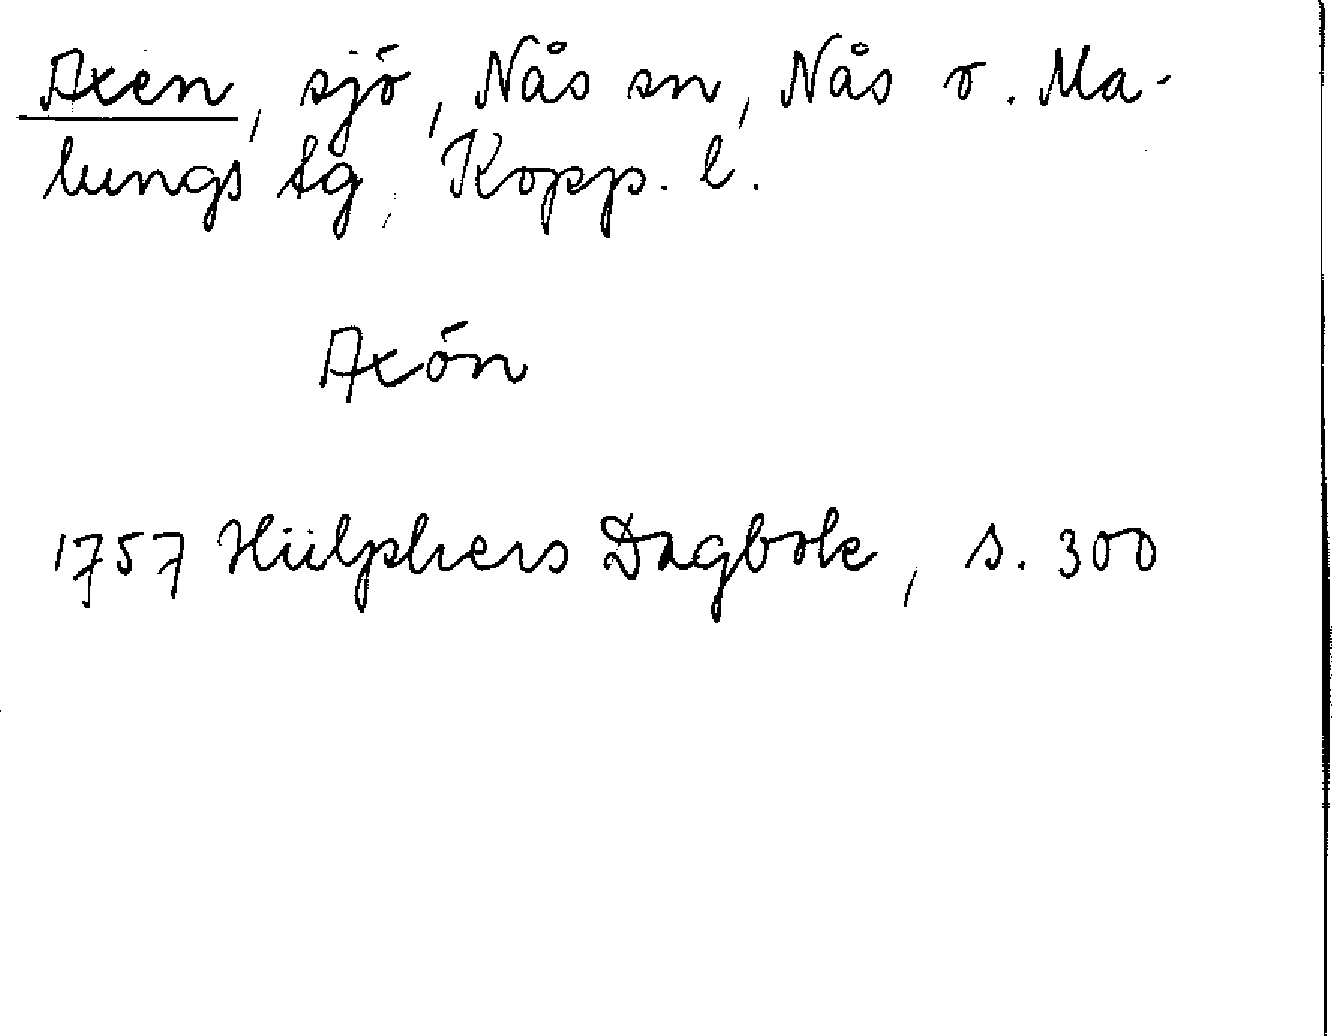 Axen, sjö, Nås sn, Nås o. Ma-
lungs tg, Kopp. l.
Axön
1757 Hülphers Dagbok, s. 300